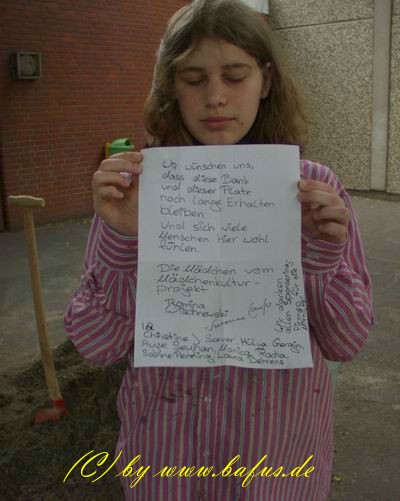 Wir wünschen uns,
dass diese Bank
und dieser Platz
noch lange Erhalten
bleiben
Und sich viele
Menschen hier wohl
fühlen.
Die Mädchen vom
Mädchenkultur-
projekt
Romina
Wischnewski
Susanne
Wir danken
allen Sponsoring
Firmen für die
Christine Sawer, Hülya
Ayse Seyhan, Monica, Racha
Sabine Penning, Laura Behrens
(C) by www.bafus.de